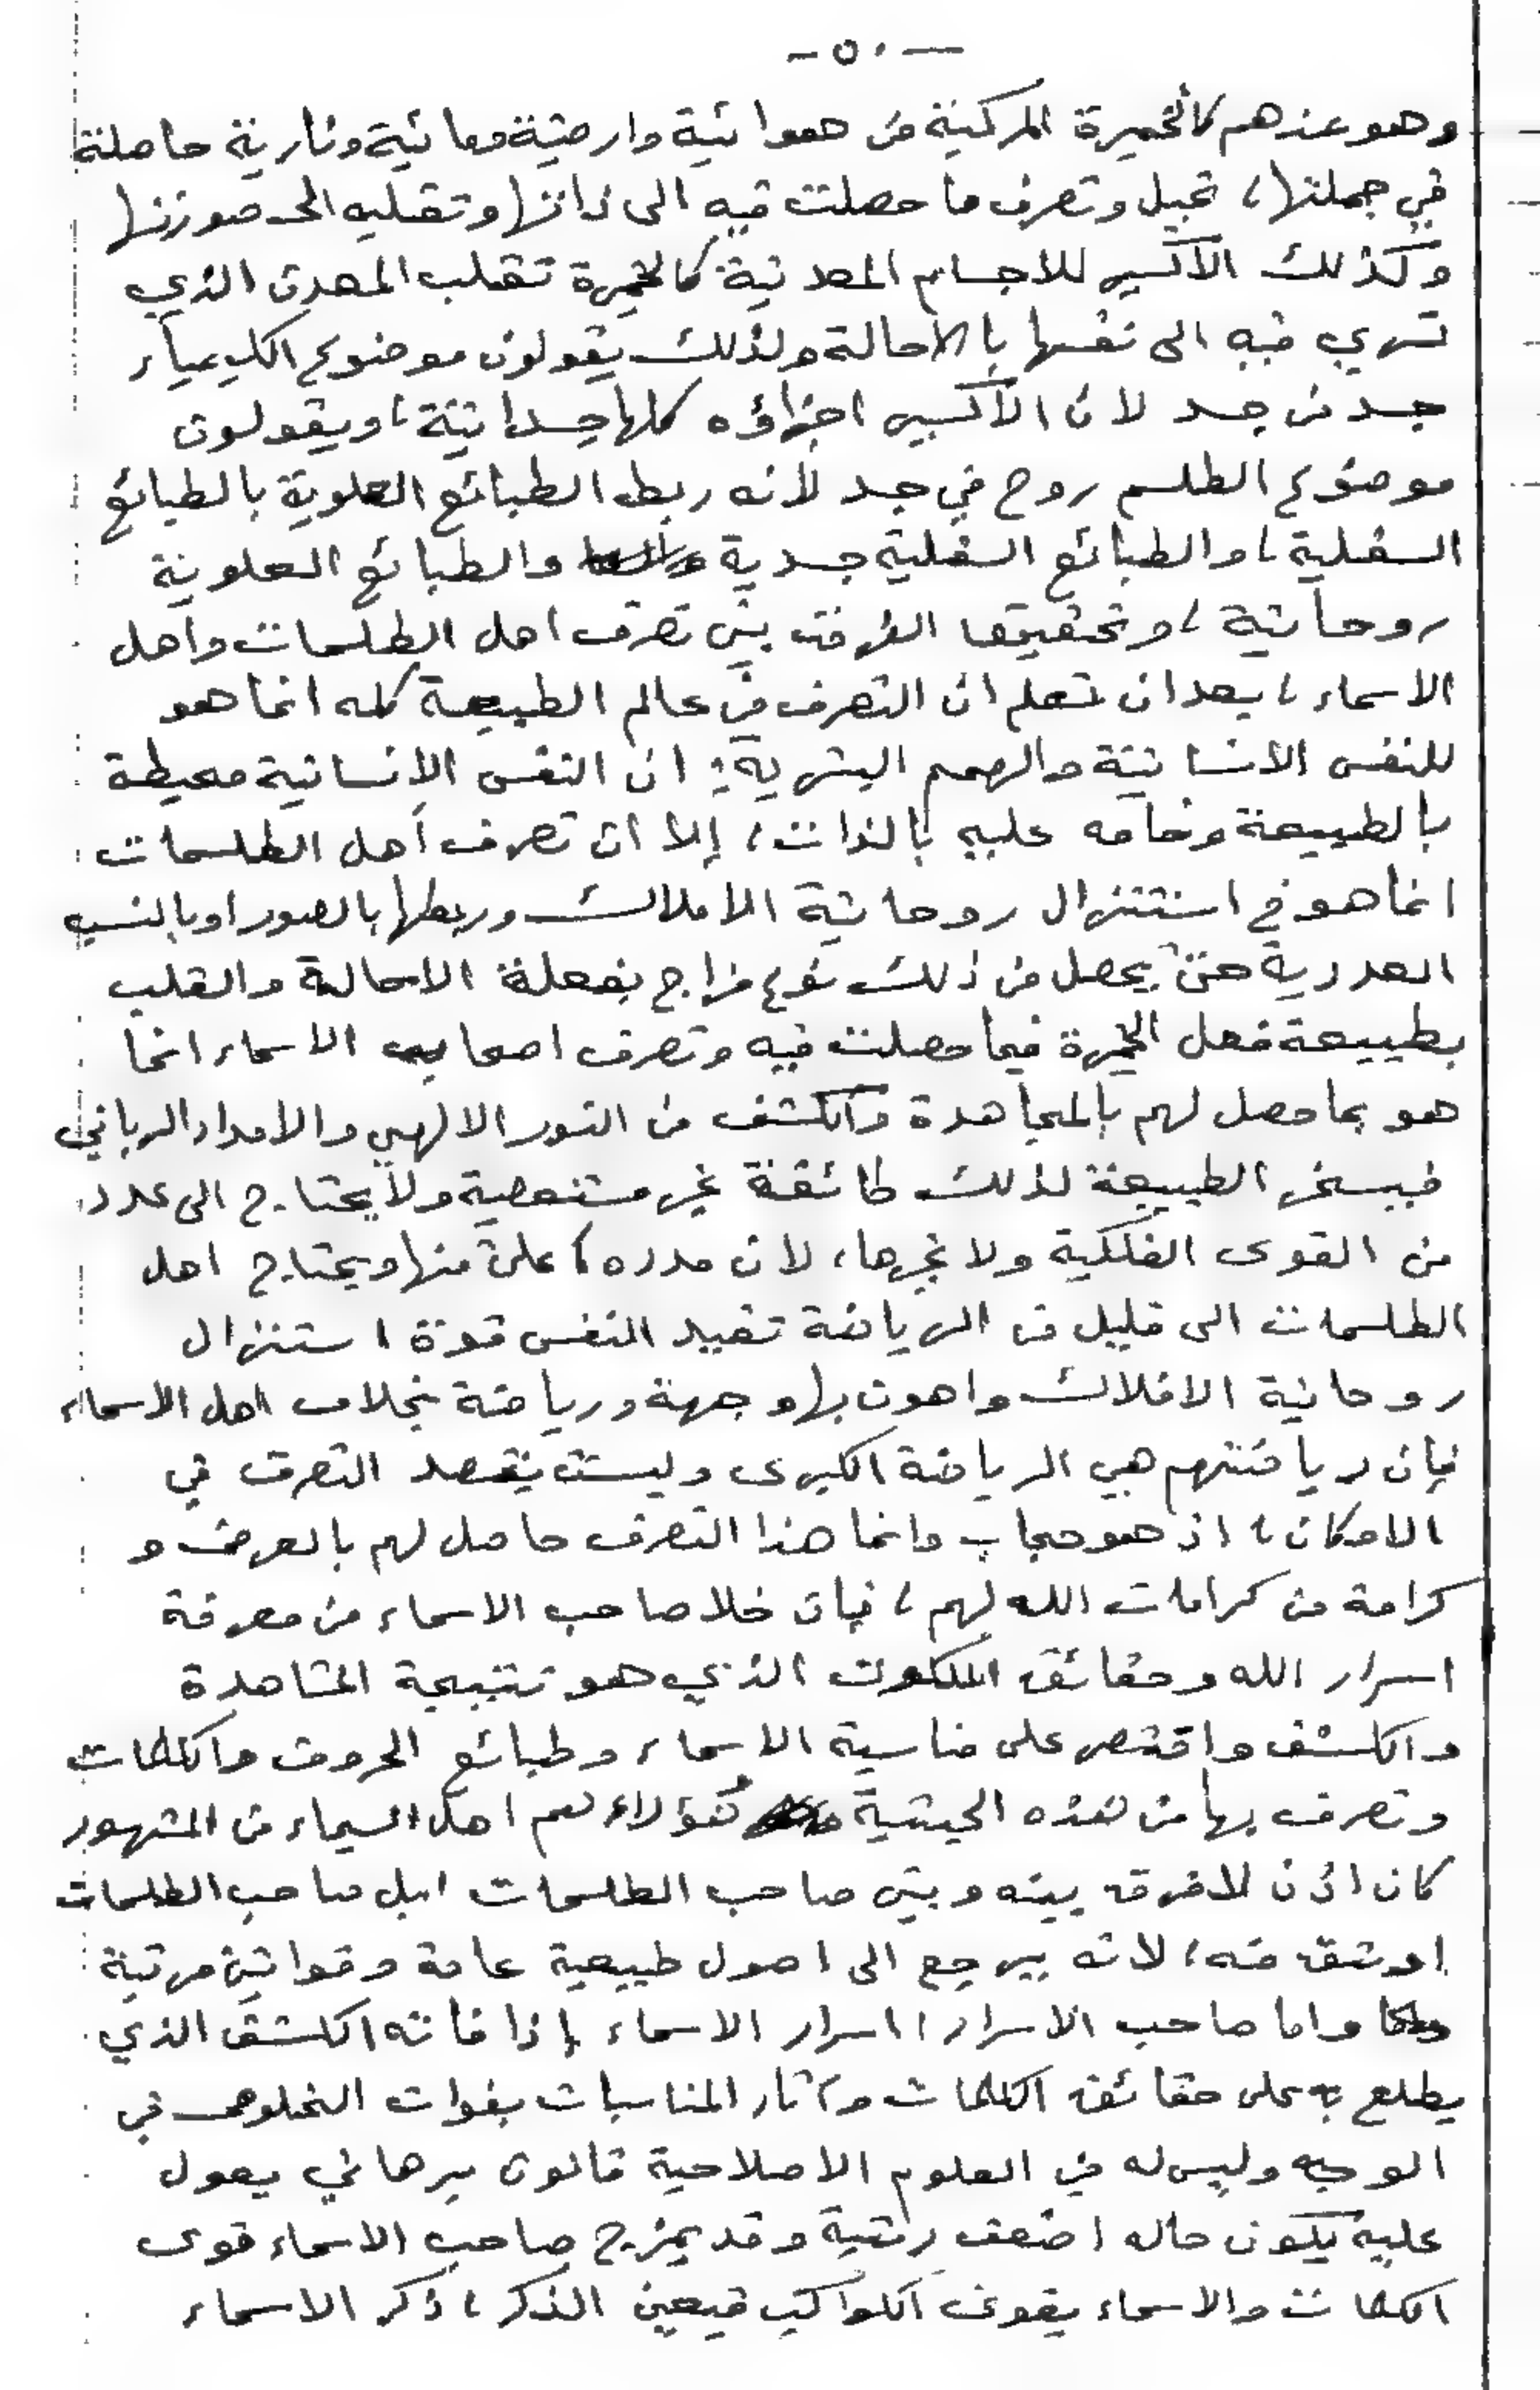 - ٥٠ -
وهو عندهم كالخميرة المركبة من هوائية وارضية ومائية ونارية حاصلة
في جملتها، تحيل وتصرف ما حصلت فيه الى ذاتها وتقلبه الى صورتها
وكذلك الأكسير للاجسام المعدنية كالخميرة تقلب المعدن الذي
تسري فيه الى نفسها بالاحالة ولذلك يقولون موضوع الكيمياء
جسد في جسد لان الأكسير اجزاؤه كلها جسدانية، ويقولون
موضوع الطلسم روح في جسد لأنه ربط الطبائع العلوية بالطبائع
السفلية، والطبائع السفلية جسدية والطبائع العلوية
روحانية، وتحقيقها الفرق بين تصرف اهل الطلسمات وأهل
الاسماء، بعد ان تعلم ان التصرف في عالم الطبيعة كله انما هو
للنفس الانسانية والهمم البشرية؛ ان النفس الإنسانية محيطة
بالطبيعة وحامه عليه بالذات، إلا ان تصرف أهل الطلسمات
انما هو في استنزال روحانية الافلاك وربطها بالصور او بالنسب
العددية حتى يحصل من ذلك نوع مزاج بفعلة الاحالة والقلب
بطبيعة فعل الخميرة فيما حصلت فيه وتصرف اصحاب الاسماء انما
هو بما حصل لهم بالمجاهدة والكشف من النور الالهي والامداد الرباني
فيسخر الطبيعة لذلك طائعة غير مستعصية ولا يحتاج الى مدد
من القوى الفلكية ولا غيرها، لان مدده اعلى منها ويحتاج اهل
الطلسمات الى قليل من الرياضة تفيد النفس قوة استنزال
روحانية الافلاك واهون بها وجهة ورياضة بخلاف اهل الاسماء
فإن رياضتهم هي الرياضة الكبرى وليست بقصد التصرف في
الامكان، اذ هو حجاب وانما هذا التصرف حاصل لهم بالعرض و
كرامة من كرامات الله لهم، فإن خلا صاحب الاسماء من معرفة
اسرار الله وحقائق الملكوت الذي هو نتيجة المشاهدة
والكشف واقتصر على مناسبة الاسماء وطبائع الحروف والكلمات
وتصرف بها من هذه الحيثية هؤلاء هم اهل السيماء من المشهور
كان اذن لا فرق بينه وبين صاحب الطلسمات ابل صاحب الطلسمات
اوثق منه، لانه يرجع الى اصول طبيعية عامة وقوانين مرتبة
واما صاحب الاسرار، اسرار الاسماء إذا فاته الكشف الذي
يطلع به على حقائق الكلمات وآثار المناسبات بفوات الخلوص في
الوجه وليس له في العلوم الاصلاحية قانون برهاني يعول
عليه يكون حاله اضعف رتبة وقد يمزج صاحب الاسماء قوى
الكلمات والاسماء بقوى الكواكب فيعين الذكر، ذكر الاسماء